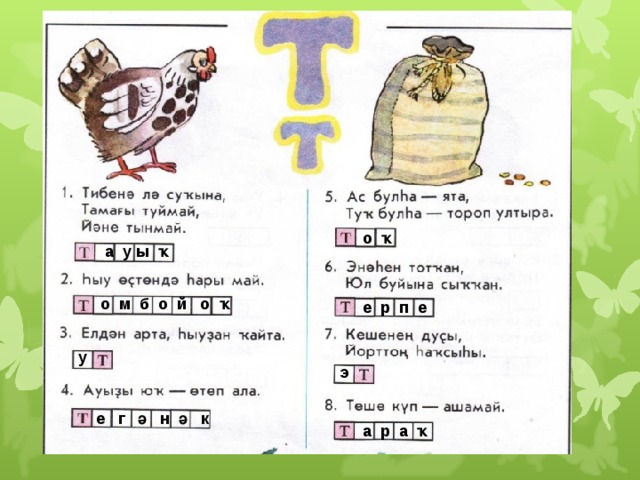 Т
т
1. Тибенә лә суҡына,
Тамағы туймай,
Йәне тынмай.
Тауыҡ
2. Һыу өҫтөндә һары май.
Томбойоҡ
3. Елдән арта, һыуҙан ҡайта.
уТ
4. Ауыҙы юҡ — өтөп ала.
Тегәнәк
5. Ас булһа — ята,
Туҡ булһа — тороп ултыра.
Тоҡ
6. Энәһен тотҡан,
Юл буйына сыҡҡан.
Терпе
7. Кешенең дуҫы,
Йорттоң һаҡсыһы.
эТ
8. Теше күп — ашамай.
Тараҡ